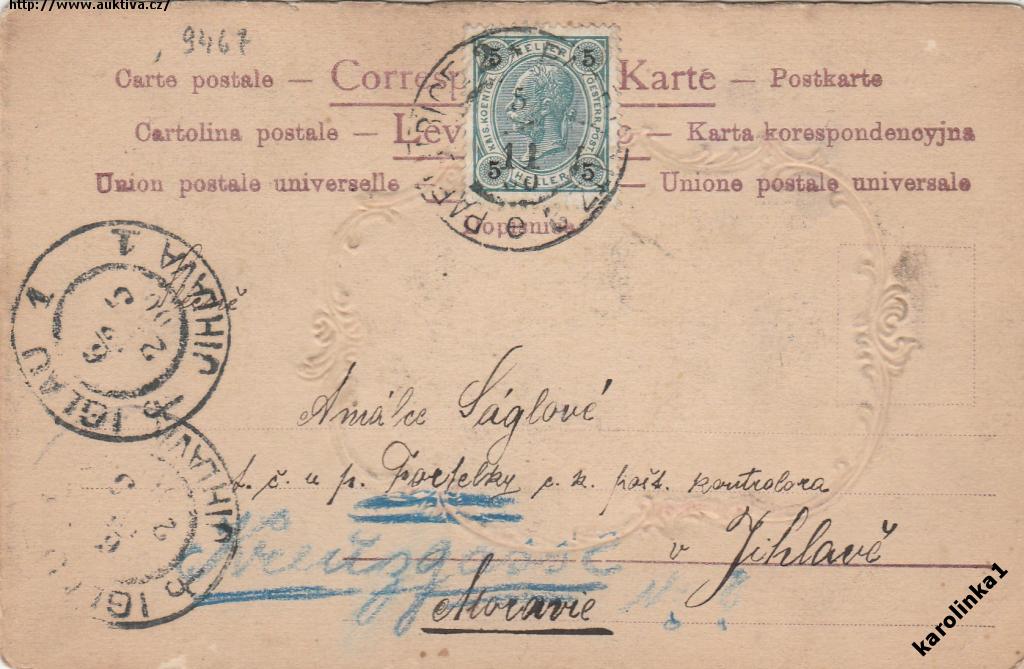 http://www.auktiva.cz/
9467
Carte postale – Corresp Karte – Postkarte
Cartolina postale – Lev – Karta korespondencyjna
Union postale universelle – Unione postale universale
Dopisnica
5 HELLER 5
KAIS. KOENIGL. OESTERR. POST
5 HELLER 5
IGLAU 1 JIHLAVA 1
Amálce Ságlové
t. č. u p. Fortelky c. k. pošt. kontrolora
v Jihlavě
Kreuzgasse
Moravie
IGLAU JIHLAVA
karolinka1